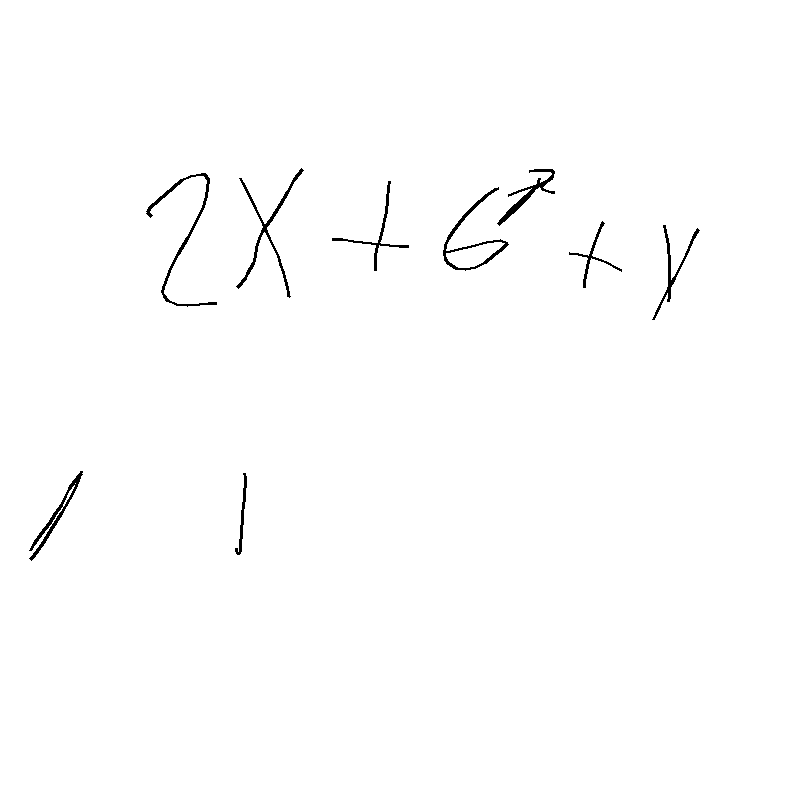 2x + 6 + y